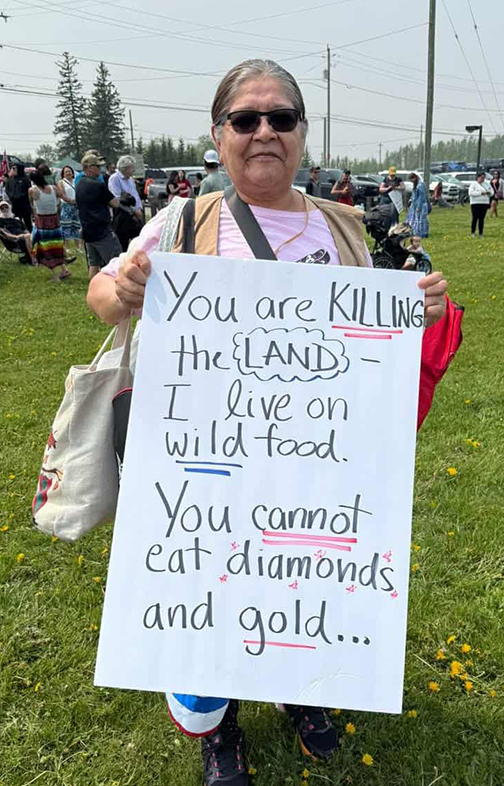 You are KILLING
the LAND -
I live on
wild food.
You cannot
eat diamonds
and gold...